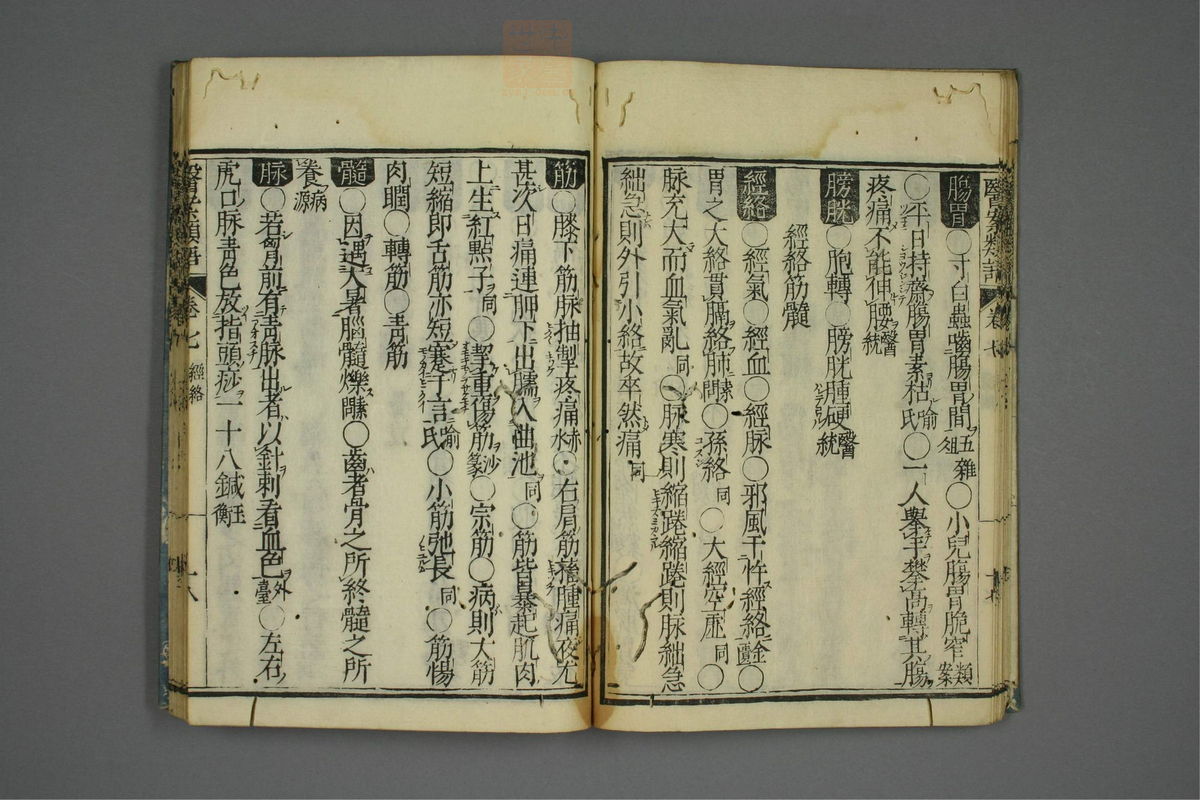 醫案類語 卷七
腸胃○寸白蟲嚙腸胃間五雜俎○小兒腸胃脆窄類案
○平日持齋腸胃素枯喻氏○一人舉手攀高轉其腸
疼痛不能伸腰醫統
膀胱○胞轉○膀胱腫硬醫統
經絡筋髓
經絡○經氣○經血○經脉○邪風干忤經絡金匱○
胃之大絡貫膈絡肺素問○孫絡同○大經空虛同○
脉充大而血氣亂同○脉寒則縮踡縮踡則脉絀急
絀急則外引小絡故卒然痛同
筋○膝下筋脉抽掣疼痛赤水○右肩筋腫痛夜尤
甚次日痛連胛下出臑入曲池同○筋皆暴起肌肉
上生紅㸃子同○挈重傷筋沙篆○宗筋○病則大筋
短縮即舌筋亦短蹇于言喻氏○小筋弛長同○筋惕
肉瞤○轉筋○青筋
髓○因遇大暑腦髓爍素問○齒者骨之所終髓之所
養病源
脉○若胷前有青脉出者以針刺看血色外臺○左右
虎口脉青色放指頭痧一十八鍼玉衡
醫案類語 卷七 經絡 十八